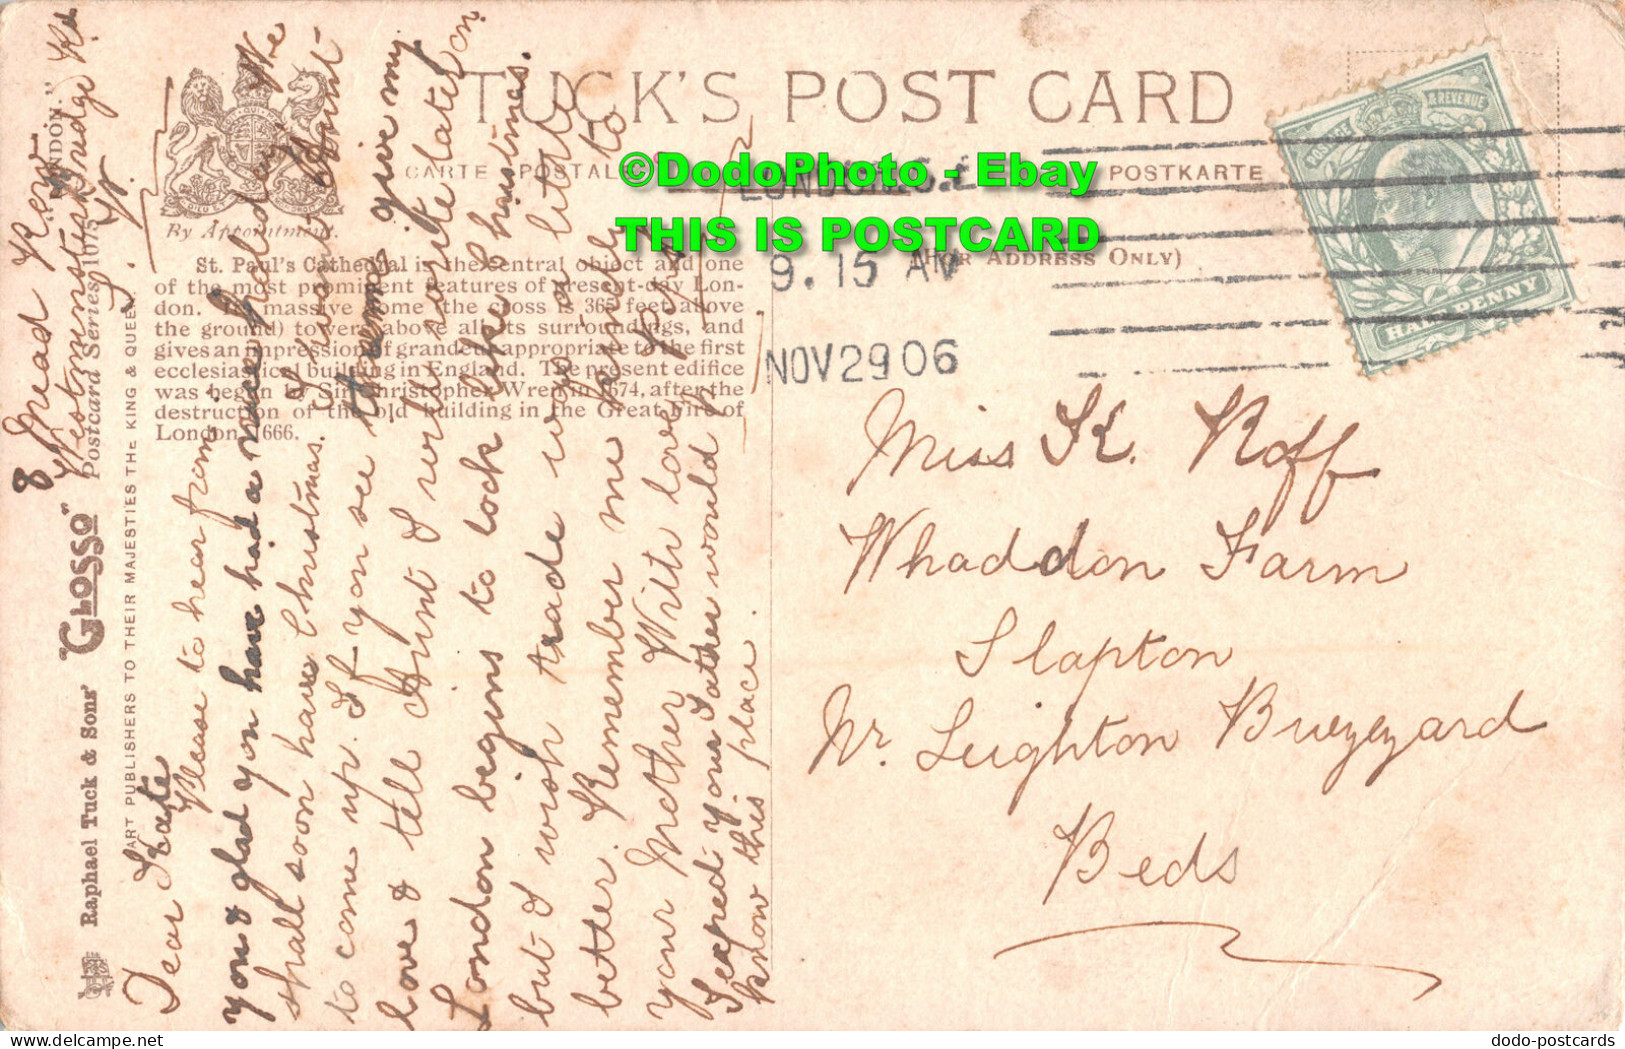 TUCK'S POST CARD
CARTE POSTALE
POSTKARTE
(FOR ADDRESS ONLY)
©DodoPhoto - Ebay
THIS IS POSTCARD
9.15 AM
NOV 29 06
POSTAGE
& REVENUE
HALFPENNY
By Appointment.
St. Paul's Cathedral is the central object and one
of the most prominent features of present-day Lon-
don. Its massive dome (the cross is 365 feet above
the ground) towers above all its surroundings, and
gives an impression of grandeur appropriate to the first
ecclesiastical building in England. The present edifice
was begun by Sir Christopher Wren in 1674, after the
destruction of the old building in the Great Fire of
London, 1666.
Raphael Tuck & Sons' "GLOSSO" Postcard Series 1015 "LONDON."
ART PUBLISHERS TO THEIR MAJESTIES THE KING & QUEEN.
8 Mead Row
Westminster Bridge Rd
Dear Kate
Please to hear from
you & glad you have had a nice holiday. We
shall soon have Christmas. I want Aunt
to come up. If you see them give my
love & tell Aunt I will write later on
London begins to look like Christmas.
but I wish trade was a little
better. Remember me kindly to
your Mother With love
I expect your Father would
know this place.
Miss K. Roff
Whaddon Farm
Slapton
Nr. Leighton Buzzard
Beds
dodo-postcards